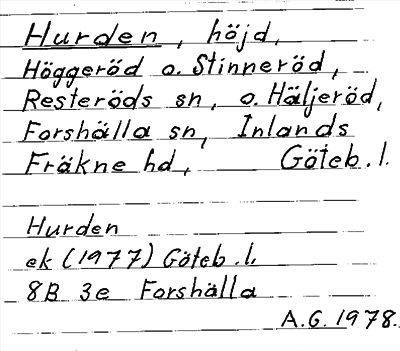 Hurden, höjd,
Höggeröd o. Stinneröd,
Resteröds sn, o. Häljeröd,
Forshälla sn, Inlands
Fräkne hd, Göteb. l.
Hurden
ek (1977) Göteb. l.
8B 3e Forshälla
A.G. 1978.